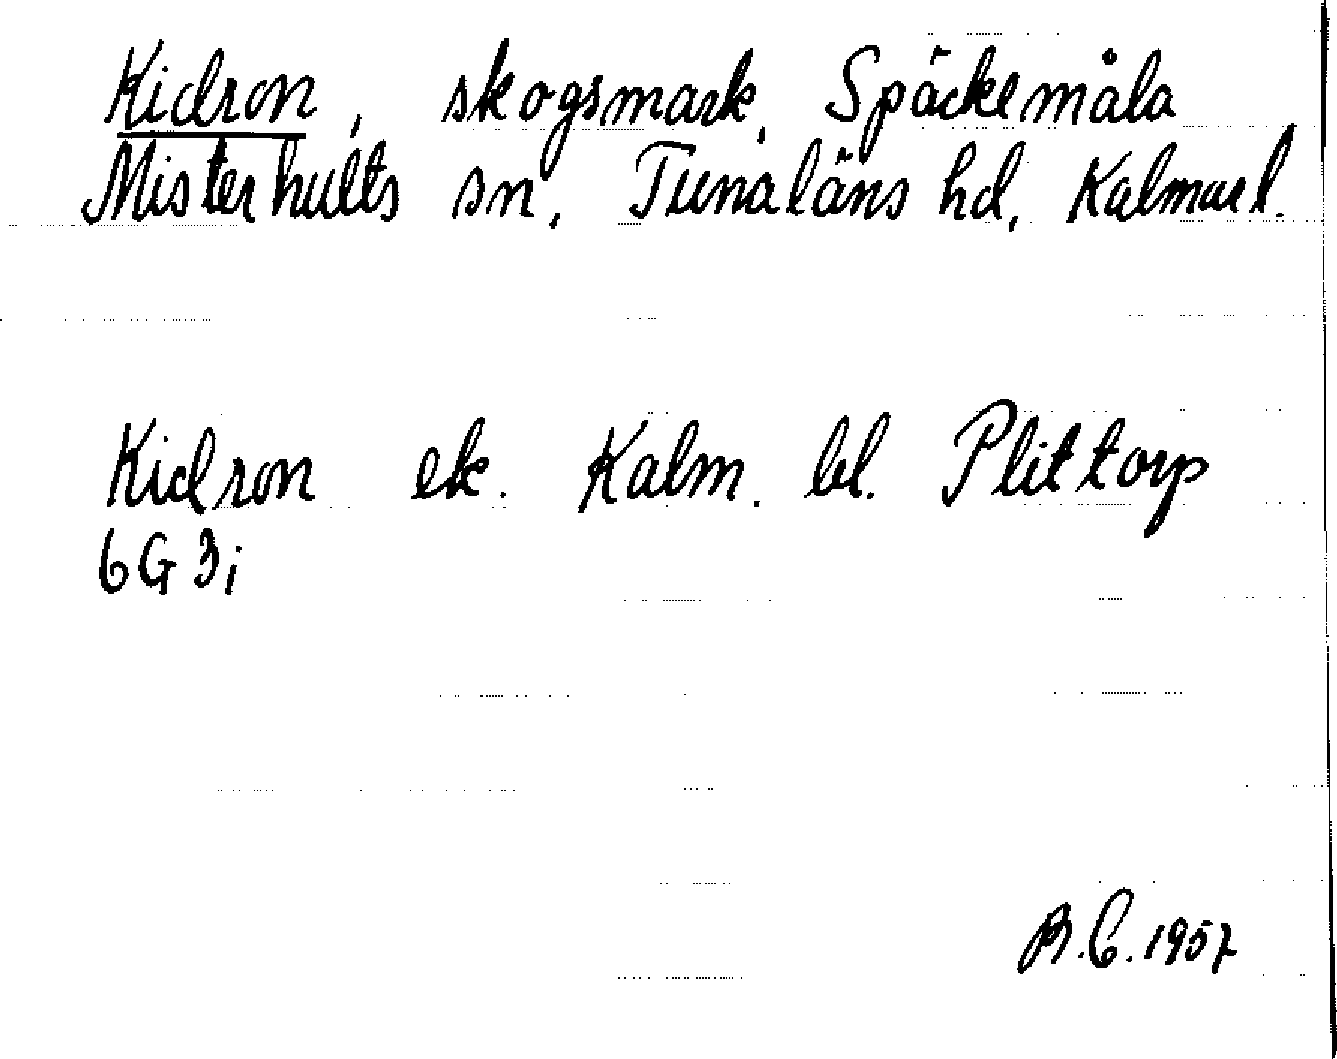 Kidron, skogsmark, Späckemåla
Misterhults sn, Tunaläns hd, Kalmar l.
Kidron ek. Kalm. bl. Plittorp
6G 3i
B.C. 1957